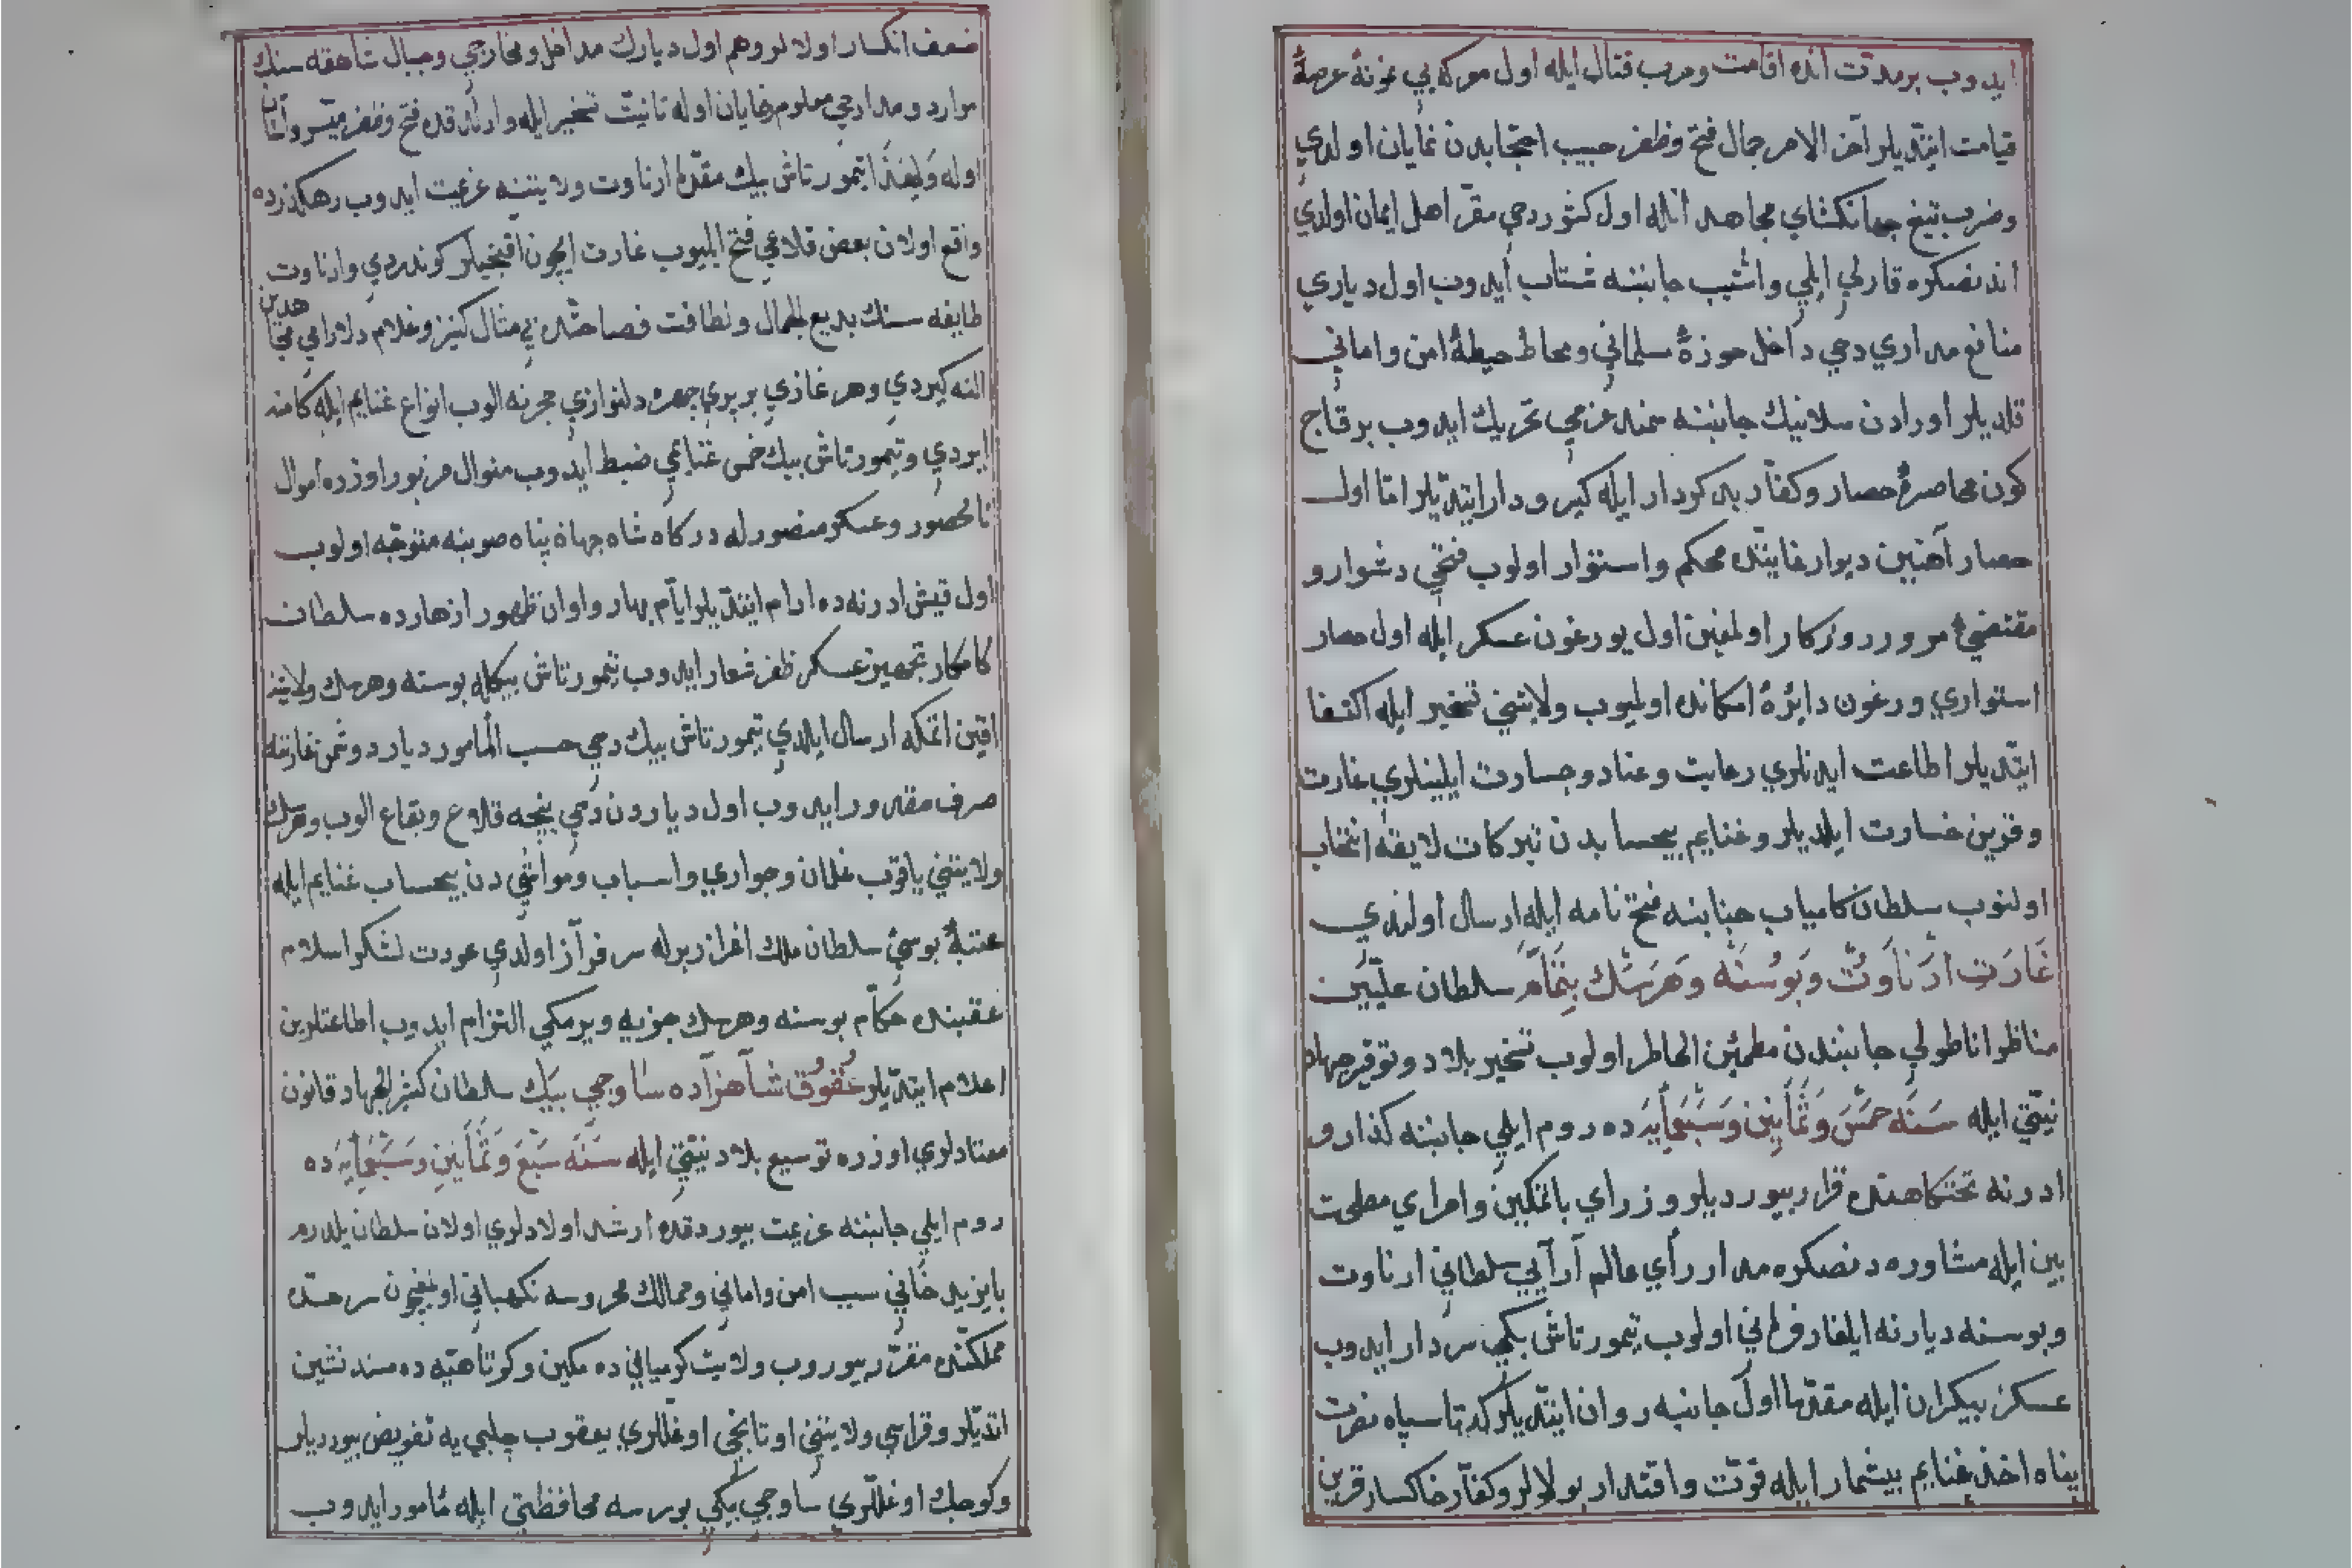 ايدوب بر مدت انده اقامت وحرب قتال ايله اول معركه يي نمونهٔ عرصهٔ
قيامت ايتديلر آخر الامر جمال فتح وظفر حبيب احتجابدن نمايان اولدي
وضرب تيغ جهانكشاي مجاهد انله اول كشور دخي مقرّ اهل ايمان اولدي
اندنصكره قارلي ايلي واشتيب جانبنه شتاب ايدوب اول دياري
منافع مداري دخي داخل حوزهٔ سلماني ومحاط حيطهٔ امن واماني
قلديلر اورادن سلانيك جانبنه سمند عزمي تحريك ايدوب بر قاچ
كون محاصرهٔ حصار وكفّار بد كردار ايله كير ودار ايتديلر امّا اول
حصار آهنين ديوار غايتده محكم واستوار اولوب فتحي دشوار و
مقتضئ مرور روزكار اولمغين اول يورغون عسكر ايله اول حصار
استواري ورغون دايرهٔ امكانده اولميوب ولايتني تسخير ايله اكتفا
ايتديلر اطاعت ايدنلري رعايت وعناد وجسارت ايلينلري غارت
وقرين خسارت ايلديلر وغنايم بيحسابدن تبركات لايقه انتخاب
اولنوب سلطان كامياب جنابنه فتح نامه ايله ارسال اولندي
غَارَتِ ارْنَاوُتْ وَبُوسْنَه وَهَرْسَك بِتَمَامْ سلطان علّيّين
مناظر اناطولي جانبندن مطمئن الخاطر اولوب تسخير بلاد وتوقير جهاد
نيّتي ايله سَنَه خَمْسَ وَثَمَانِينَ وَسَبْعَمِايَه ده روم ايلي جانبنه كذار و
ادرنه تختكاهنده قرار بيورديلر وزراي باتمكين وامراي مصلحت
بين ايله مشاوره دنصكره مدار رأي عالم آرآيي سلطاني ارناوت
وبوسنه ديارنه ايلغار فرماني اولوب تيمورتاش بكي سردار ايدوب
عسكر بيكران ايله مقدّما اول جانبه روان ايتديلر كه تا سپاه نصرت
پناه اخذ غنايم بيشمار ايله قوّت واقتدار بولالر وكفّار خاكسار قرين
ضعف انكسار اولالر وهم اول ديارك مداخل ومخارجي وجبال شاهقه سنك
موارد ومدارجي معلوم رضايان اوله تا نيّت تسخير ايله واردقده فتح وظفر ميسّر وآسان
اوله وَلِهَذَا تيمورتاش بيك مقدّما ارناوت ولايتنه عزيمت ايدوب رهكذرده
واقع اولان بعض قلاعي فتح ايليوب غارت ايچون اقنجيلر كوندردي وارناوت
طايفه سنك بديع الجمال ونظافت فصاحتده بي مثال كنيز وغلام دلارامي مجاهدين
النه كيردي وهر غازي بر پري چهره دلنوازي حجرنه الوب انواع غنايم ايله كامنه
ايردي وتيمورتاش بيك خمس غنايمي ضبط ايدوب منوال مزبور اوزره اموال
نامحصور وعسكر منصور له دركاه شاه جهان پناه صوبنه متوجّه اولوب
اول قيش ادرنه ده ارام ايتديلر ايّام بهار واوان ظهور ازهارده سلطان
كامكار تجهيز عسكر ظفر شعار ايدوب تيمورتاش بيكله بوسنه وهرسك ولايتنه
اقين اتمكه ارسال ايلدي تيمورتاش بيك دخي حسب المأمور ديار دوشمن غارتنه
صرف مقدور ايدوب اول دياردن دخي نيجه قلاع وبقاع الوب وهرسك
ولايتني ياقوب غلمان وجواري واسباب ومواشي دن بيحساب غنايم ايله
عتبهٔ بوسئ سلطان ملك افراز برله سر فرآز اولدي عودت لشكر اسلام
عقبنده حكّام بوسنه وهرسك جزيه ويرمكي التزام ايدوب اطاعتلرين
اعلام ايتديلر عُقُوقِ شَاهْزَاده سَاوجي بَيك سلطان كثير الجهاد قانون
معتادلري اوزره توسيع بلاد نيّتي ايله سَنَه سَبْعَ وَثَمَانِينَ وَسَبْعَمِايَه ده
روم ايلي جانبنه عزيمت بيوردقده ارشد اولادلري اولان سلطان يلدرم
بايزيد خاني سبب امن واماني وممالك محروسه نكهباني اولمغيچون سرحدّ
مملكتده مقرّر بيوروب ولايت كرمياني ده مكين وكوتاهيّه ده مسند نشين
اتديلر وقراسي ولايتني اوتانجي اوغللري يعقوب چلبي يه تفويض بيورديلر
وكوچك اوغللري ساوجي بكي بورسه محافظتي ايله مأمور ايدوب